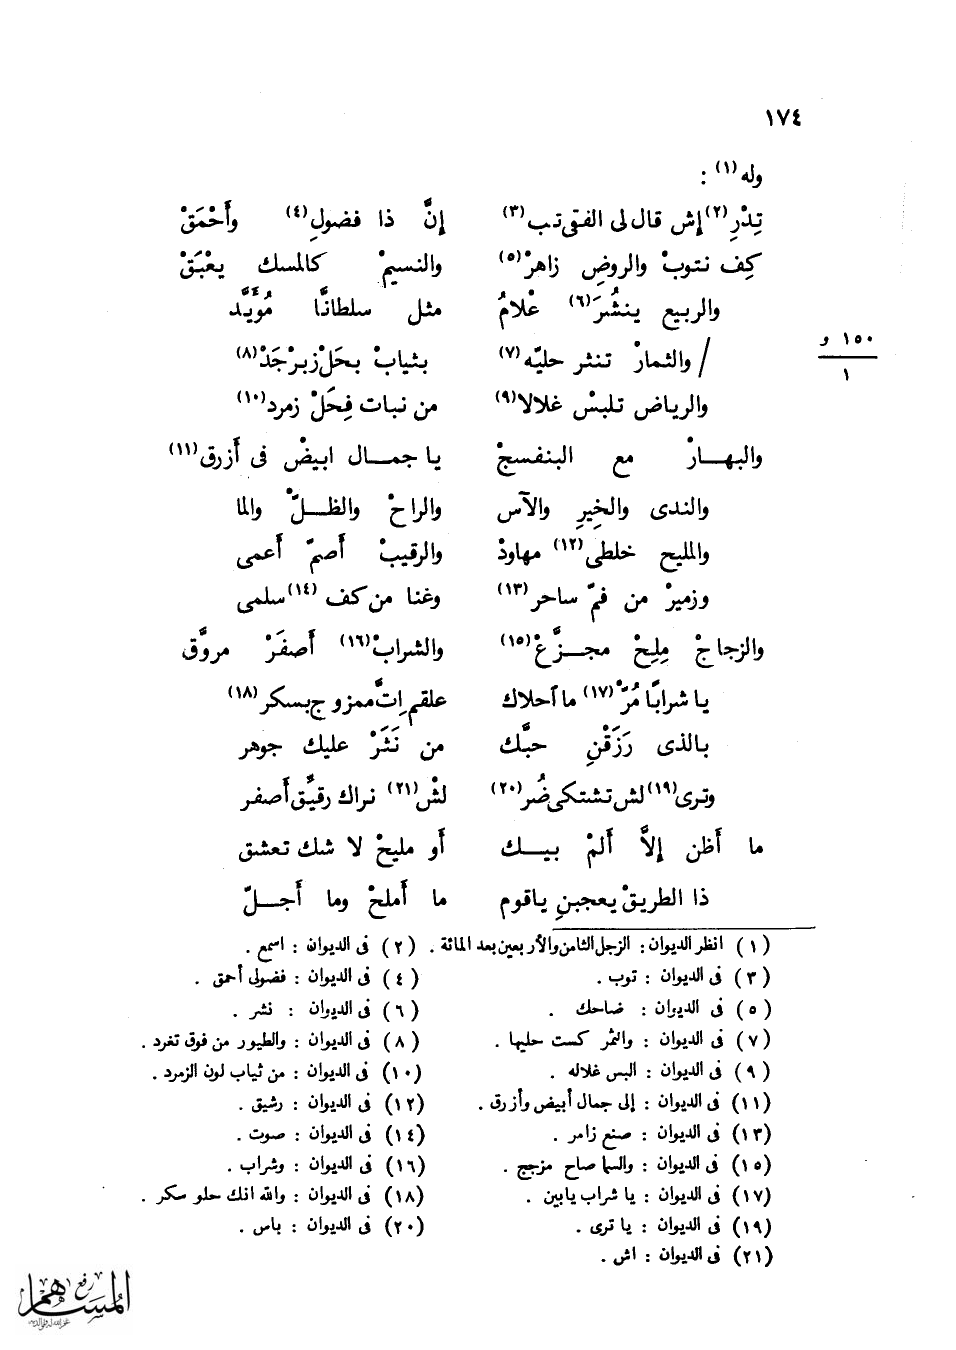 ١٧٤
وله (١) :
تِدْرِ (٢) إش قال لى الفتى تب (٣) إنَّ ذا فضولِ (٤) وأَحْمَقْ
كِف نتوبْ والروضِ زاهرْ (٥) والنسيمْ كالمسك يعْبَقْ
والربيع ينشُرَ (٦) عْلامُ مثل سلطانًا مُؤيَّد
١٥٠ و
١
/ والثمارْ تنثر حليّه (٧) بثيابْ بحَلْ زبرْجَدْ (٨)
والرياض تلبسْ غلالا (٩) من نبات فِحَلْ زمرد (١٠)
والبهارْ مع البنفسجْ يا جمال ابيضْ فى أَزرق (١١)
والندى والخِيرِ والآس والراحْ والظلّْ والما
والمليح خلطى (١٢) مهاودْ والرقيبْ أَصمّ أَعمى
وزميرْ من فمّ ساحر (١٣) وغنا من كف (١٤) سلمى
والزجاجْ مِلِحْ مجزَّعْ (١٥) والشرابْ (١٦) أَصفَرْ مروَّق
يا شرابًا مُرّْ (١٧) ما أحلاك علقم اِتَّ ممزوج بسكر (١٨)
بالذى رَزَقْنِ حبَّك من نَثَرْ عليك جوهر
وترى (١٩) لش تشتكى ضُر (٢٠) لشْ (٢١) نراك رقيَّق أَصفر
ما أَظن إلاَّ أَلمْ بيك أَو مليحْ لا شك تعشق
ذا الطريقْ يعجبنِ ياقوم ما أَملحْ وما أَجلّ
(١) انظر الديوان : الزجل الثامن والأربعين بعد المائة . (٢) فى الديوان : اسمع .
(٣) فى الديوان : توب . (٤) فى الديوان : فضولى أحمق .
(٥) فى الديوان : ضاحك . (٦) فى الديوان : نشر .
(٧) فى الديوان : والثمر كست حليها . (٨) فى الديوان : والطيور من فوق تغرد .
(٩) فى الديوان : البس غلاله . (١٠) فى الديوان : من ثياب لون الزمرد .
(١١) فى الديوان : إلى جمال أبيض وأزرق . (١٢) فى الديوان : رشيق .
(١٣) فى الديوان : صنع زامر . (١٤) فى الديوان : صوت .
(١٥) فى الديوان : والسما صاح مزجج . (١٦) فى الديوان : وشراب .
(١٧) فى الديوان : يا شراب يابين . (١٨) فى الديوان : والله انك حلو سكر .
(١٩) فى الديوان : يا ترى . (٢٠) فى الديوان : باس .
(٢١) فى الديوان : اش .
رفع
المساهم